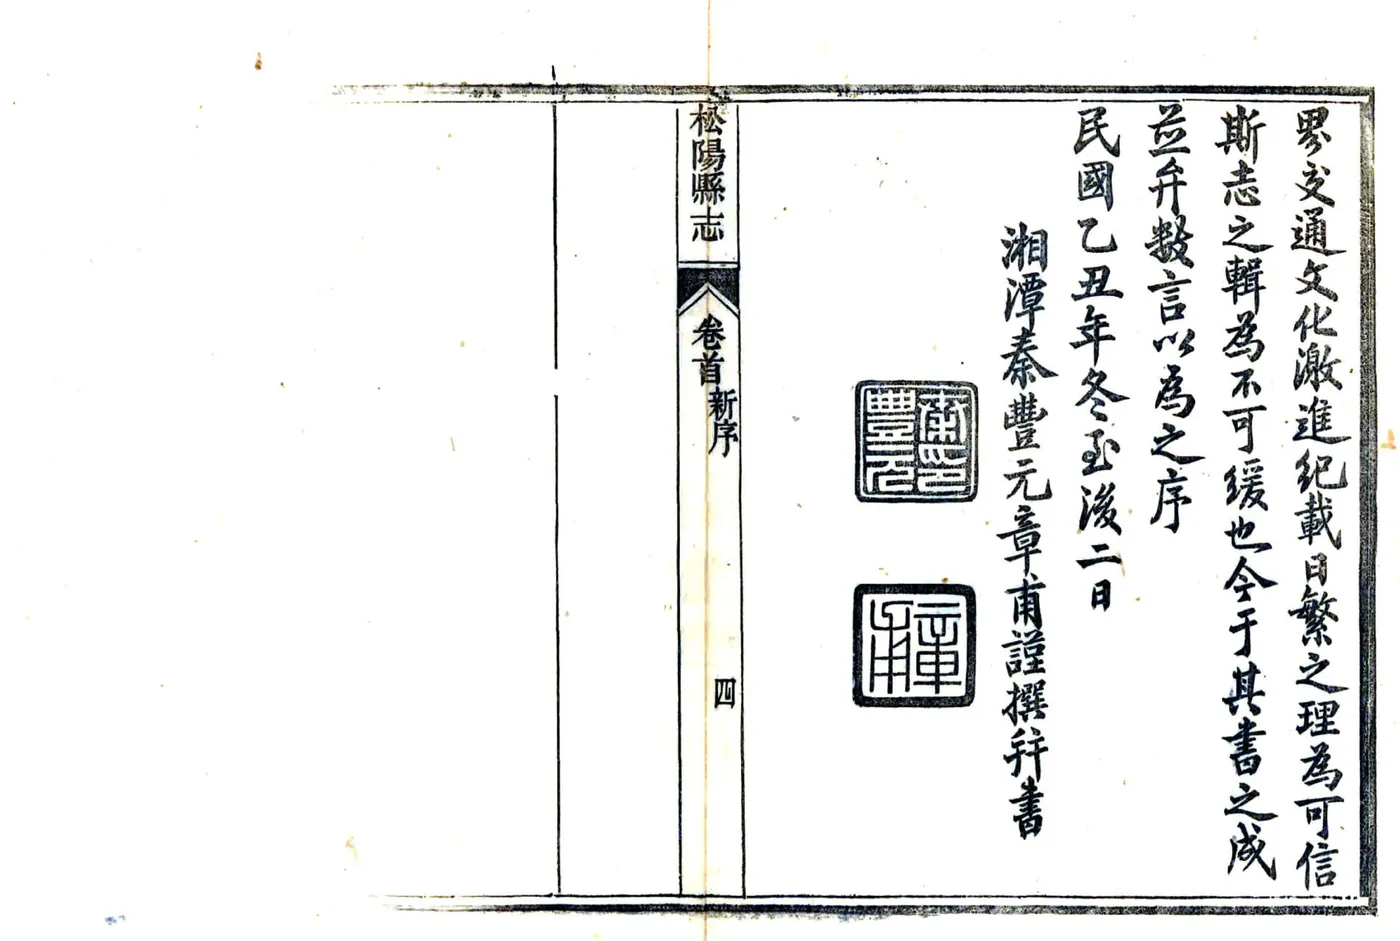 界交通文化激進紀載日繁之理為可信
斯志之輯為不可緩也今于其書之成
並弁數言以為之序
民國乙丑年冬至後二日
湘潭秦豐元章甫謹撰并書
秦印豐元
章甫
松陽縣志
卷首
新序
四